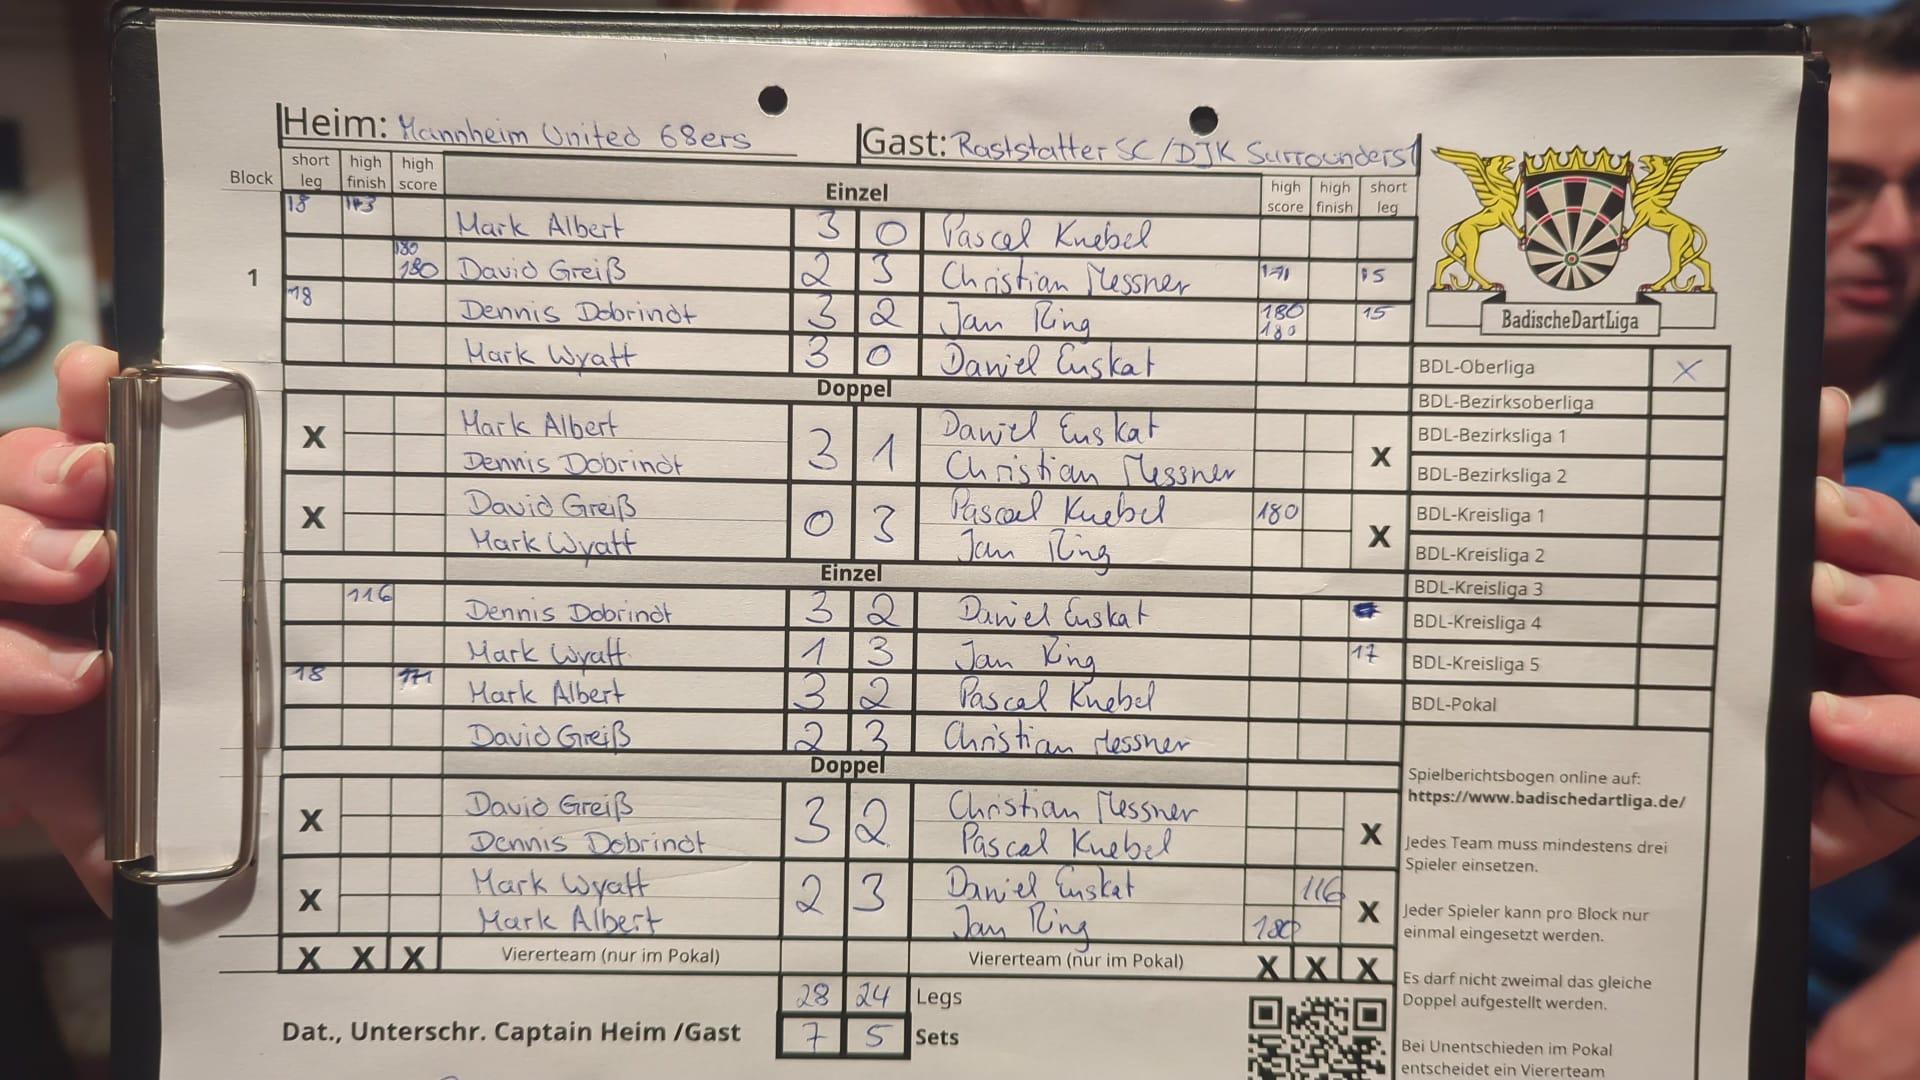 Heim: Mannheim United 68ers Gast: Raststatter SC/DJK Surrounders1
Block short leg high finish high score Einzel high score high finish short leg
18 Mark Albert 3 0 Pascal Knebel
180 180 David Greiß 2 3 Christian Messner 171 15
1
18 Dennis Dobrindt 3 2 Jan Ring 180 180 15
Mark Wyatt 3 0 Daniel Euskat
Doppel
X Mark Albert 3 1 Daniel Euskat X
Dennis Dobrindt Christian Messner
X David Greiß 0 3 Pascal Knebel 180 X
Mark Wyatt Jan Ring
Einzel
116 Dennis Dobrindt 3 2 Daniel Euskat
Mark Wyatt 1 3 Jan Ring 17
18 171 Mark Albert 3 2 Pascal Knebel
David Greiß 2 3 Christian Messner
Doppel
X David Greiß 3 2 Christian Messner X
Dennis Dobrindt Pascal Knebel
X Mark Wyatt 2 3 Daniel Euskat 116 X
Mark Albert Jan Ring 180
X X X Viererteam (nur im Pokal) Viererteam (nur im Pokal) X X X
28 24 Legs
Dat., Unterschr. Captain Heim /Gast 7 5 Sets
BadischeDartLiga
BDL-Oberliga X
BDL-Bezirksoberliga
BDL-Bezirksliga 1
BDL-Bezirksliga 2
BDL-Kreisliga 1
BDL-Kreisliga 2
BDL-Kreisliga 3
BDL-Kreisliga 4
BDL-Kreisliga 5
BDL-Pokal
Spielberichtsbogen online auf:
https://www.badischedartliga.de/
Jedes Team muss mindestens drei
Spieler einsetzen.
Jeder Spieler kann pro Block nur
einmal eingesetzt werden.
Es darf nicht zweimal das gleiche
Doppel aufgestellt werden.
Bei Unentschieden im Pokal
entscheidet ein Viererteam